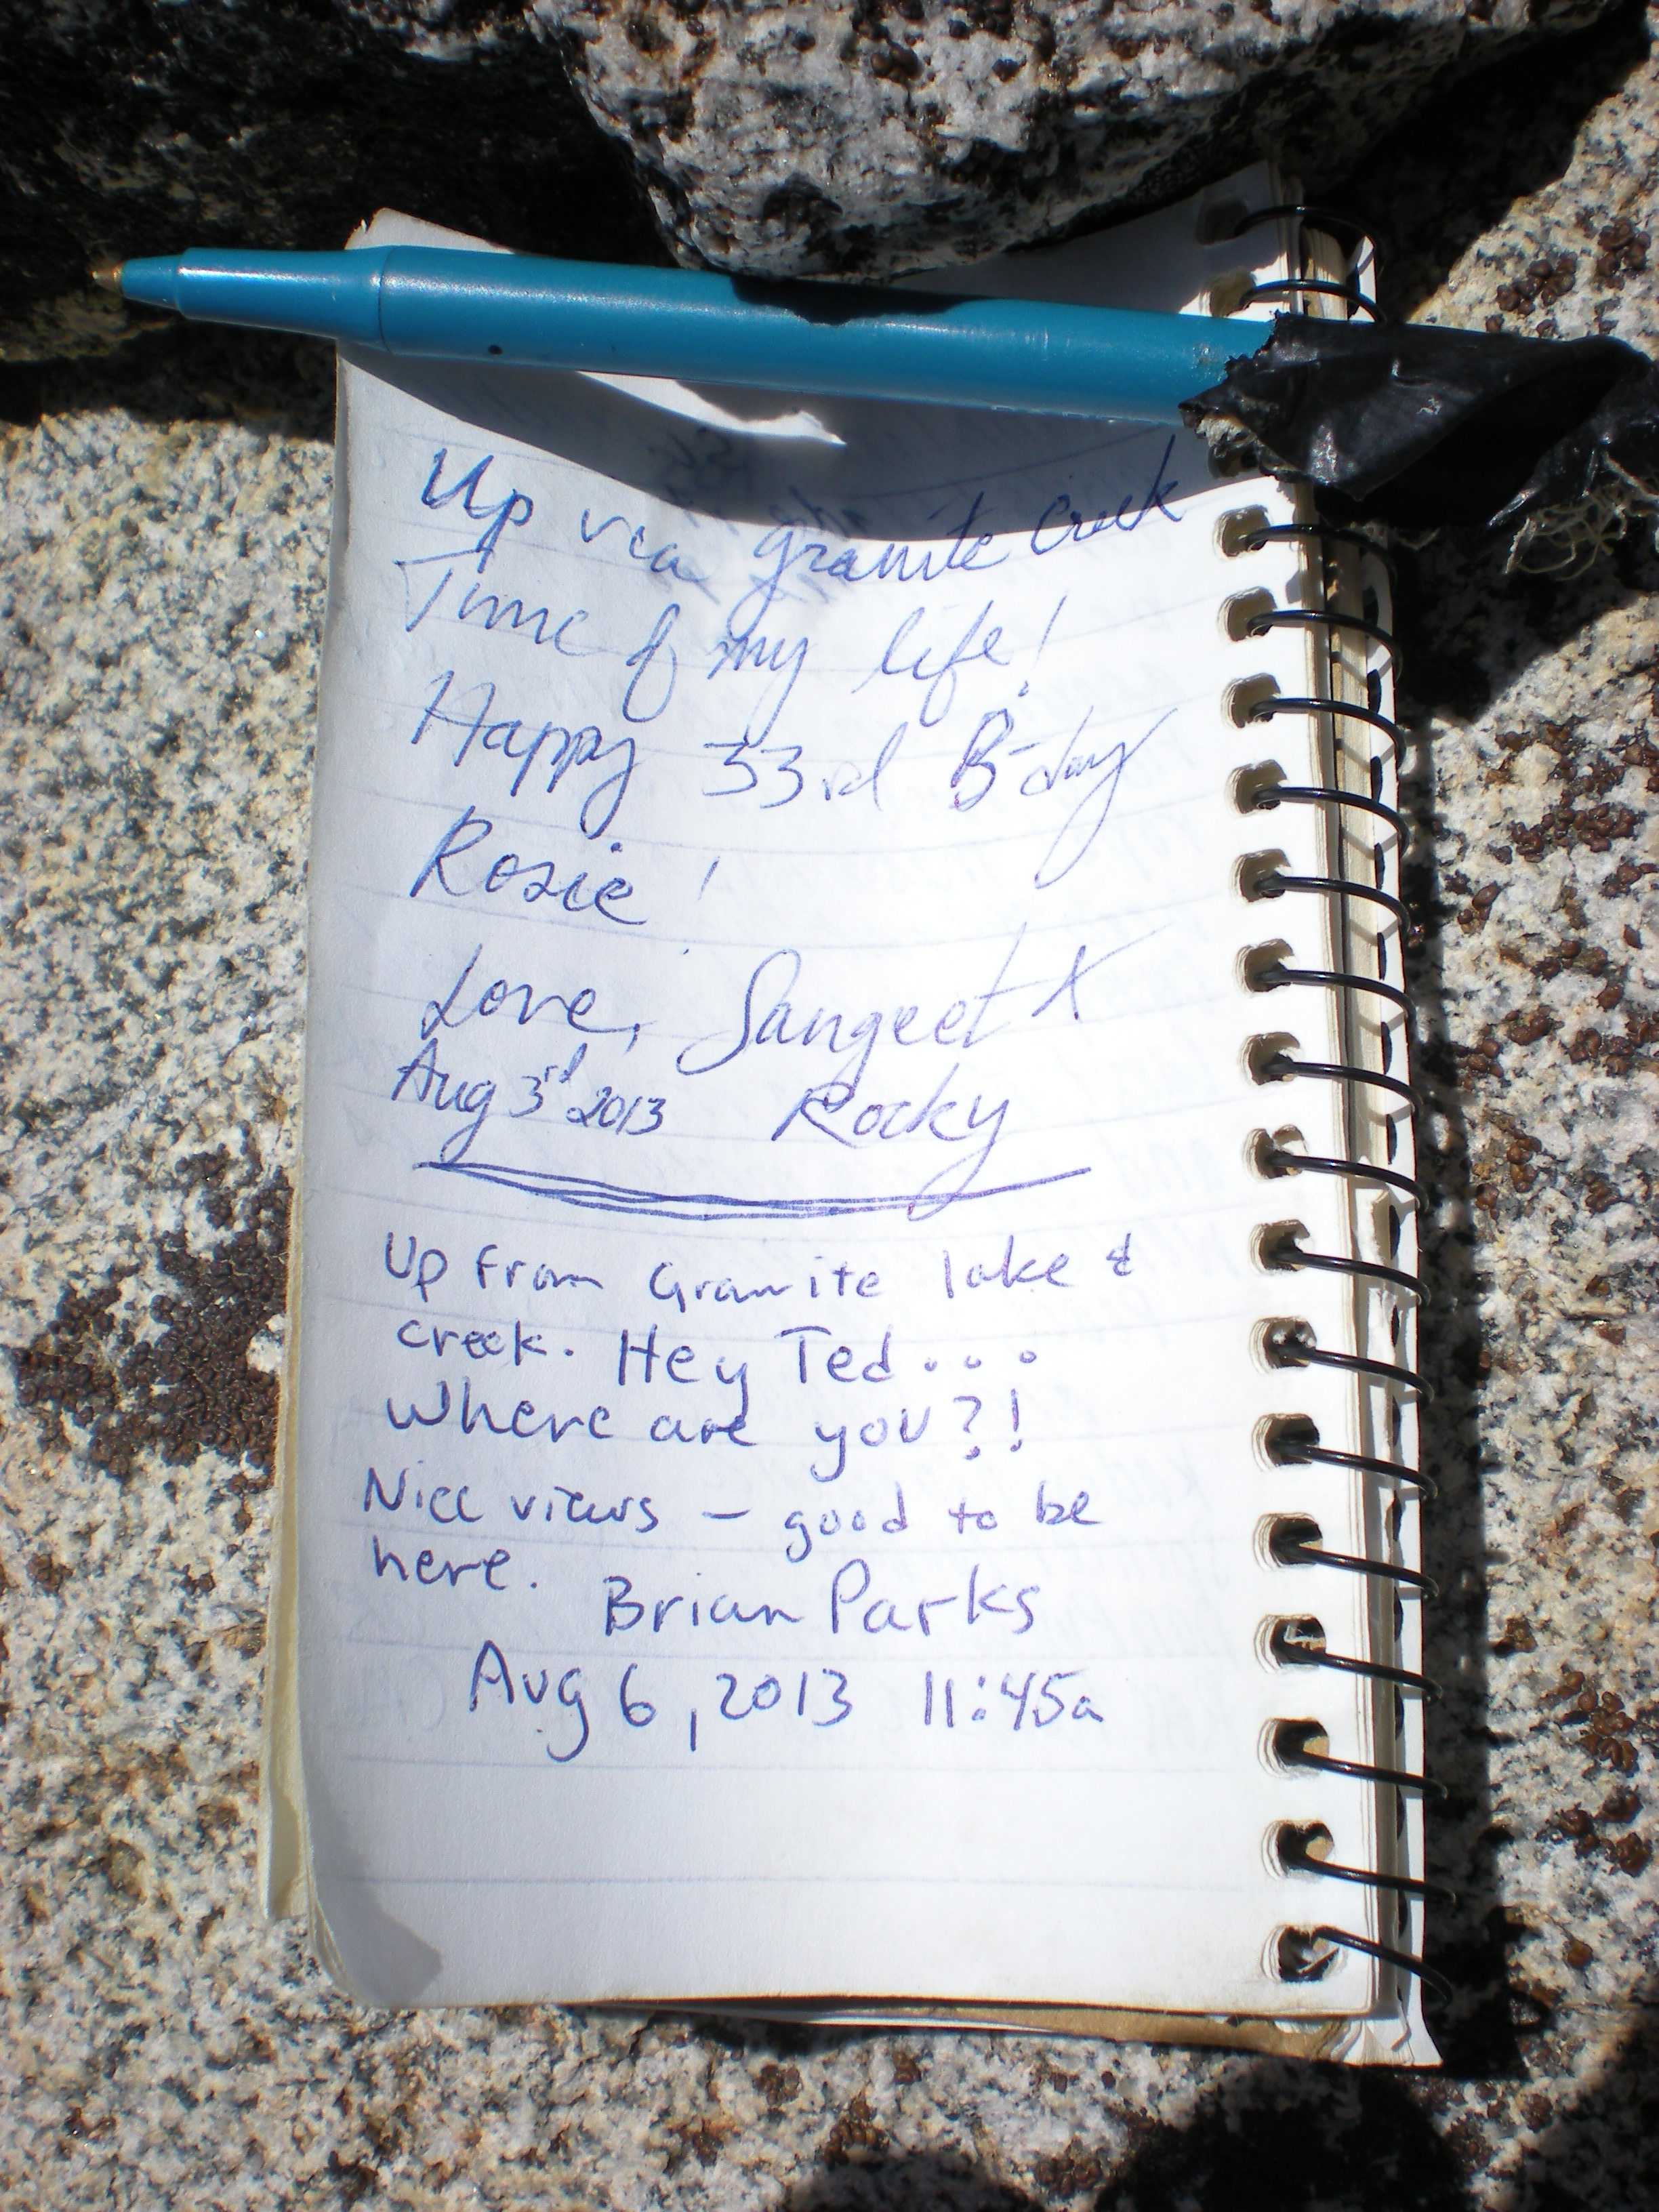 Up via granite Creek
Time of my life!
Happy 33rd B-day
Rosie!
Love, Sangeet X
Aug 3rd 2013 Rocky
Up from Granite lake &
creek. Hey Ted...
Where are you?!
Nice views - good to be
here. Brian Parks
Aug 6, 2013 11:45a